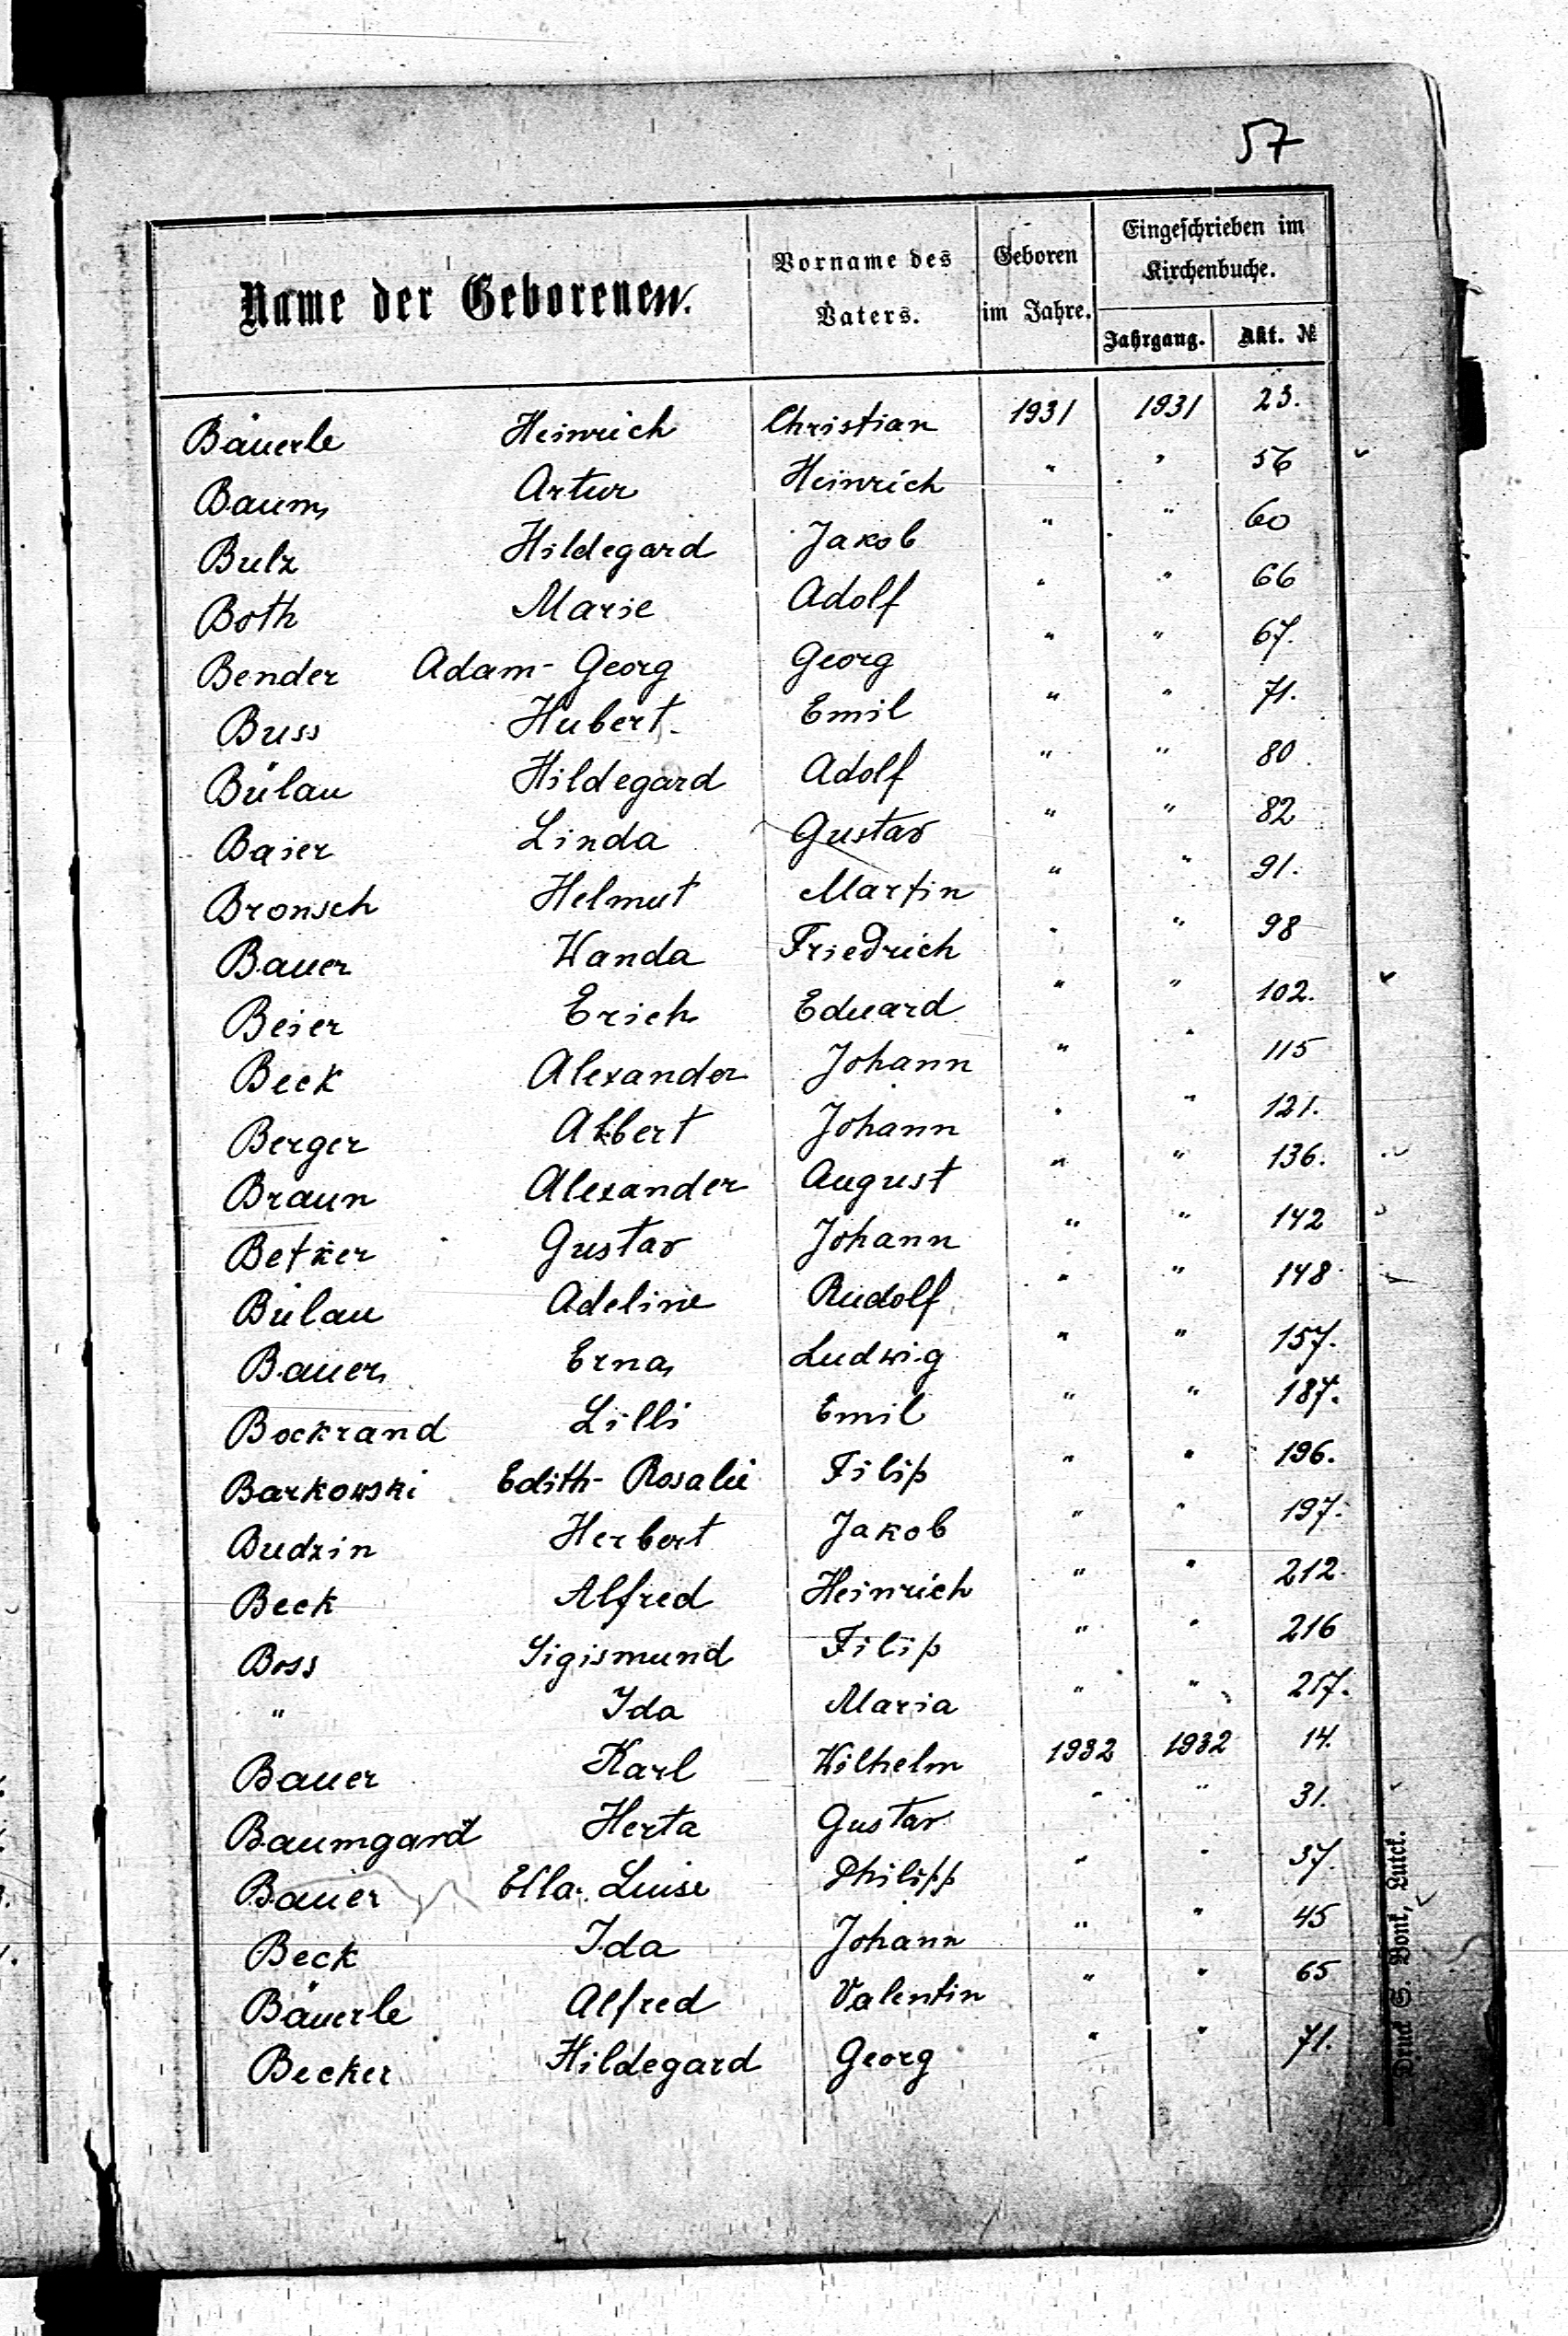 57
Name der Geborenen. Vorname des Vaters. Geboren im Jahre. Eingeschrieben im Kirchenbuche.
Jahrgang. Akt. №
Bäuerle Heinrich Christian 1931 1931 23.
Baum Artur Heinrich " " 56
Bulz Hildegard Jakob " " 60
Both Marie Adolf " " 66
Bender Adam-Georg Georg " " 67.
Buss Hubert Emil " " 71.
Bülau Hildegard Adolf " " 80.
Baier Linda Gustav " " 82
Bronsch Helmut Martin " " 91.
Bauer Wanda Friedrich " " 98
Beier Erich Eduard " " 102.
Beck Alexander Johann " " 115
Berger Albert Johann " " 121.
Braun Alexander August " " 136.
Betker Gustav Johann " " 142
Bülau Adeline Rudolf " " 148
Bauer Erna Ludwig " " 157.
Bockrand Lilli Emil " " 187.
Barkowski Edith-Rosalie Filip " " 196.
Budzin Herbert Jakob " " 197.
Beck Alfred Heinrich " " 212.
Boss Sigismund Filip " " 216
" Ida Maria " " 217.
Bauer Karl Wilhelm 1932 1932 14.
Baumgard Herta Gustav " " 31.
Bauer Ella-Luise Philipp " " 37.
Beck Ida Johann " " 45
Bäuerle Alfred Valentin " " 65
Becker Hildegard Georg " " 71.
Druck S. Bonk, Lutck.